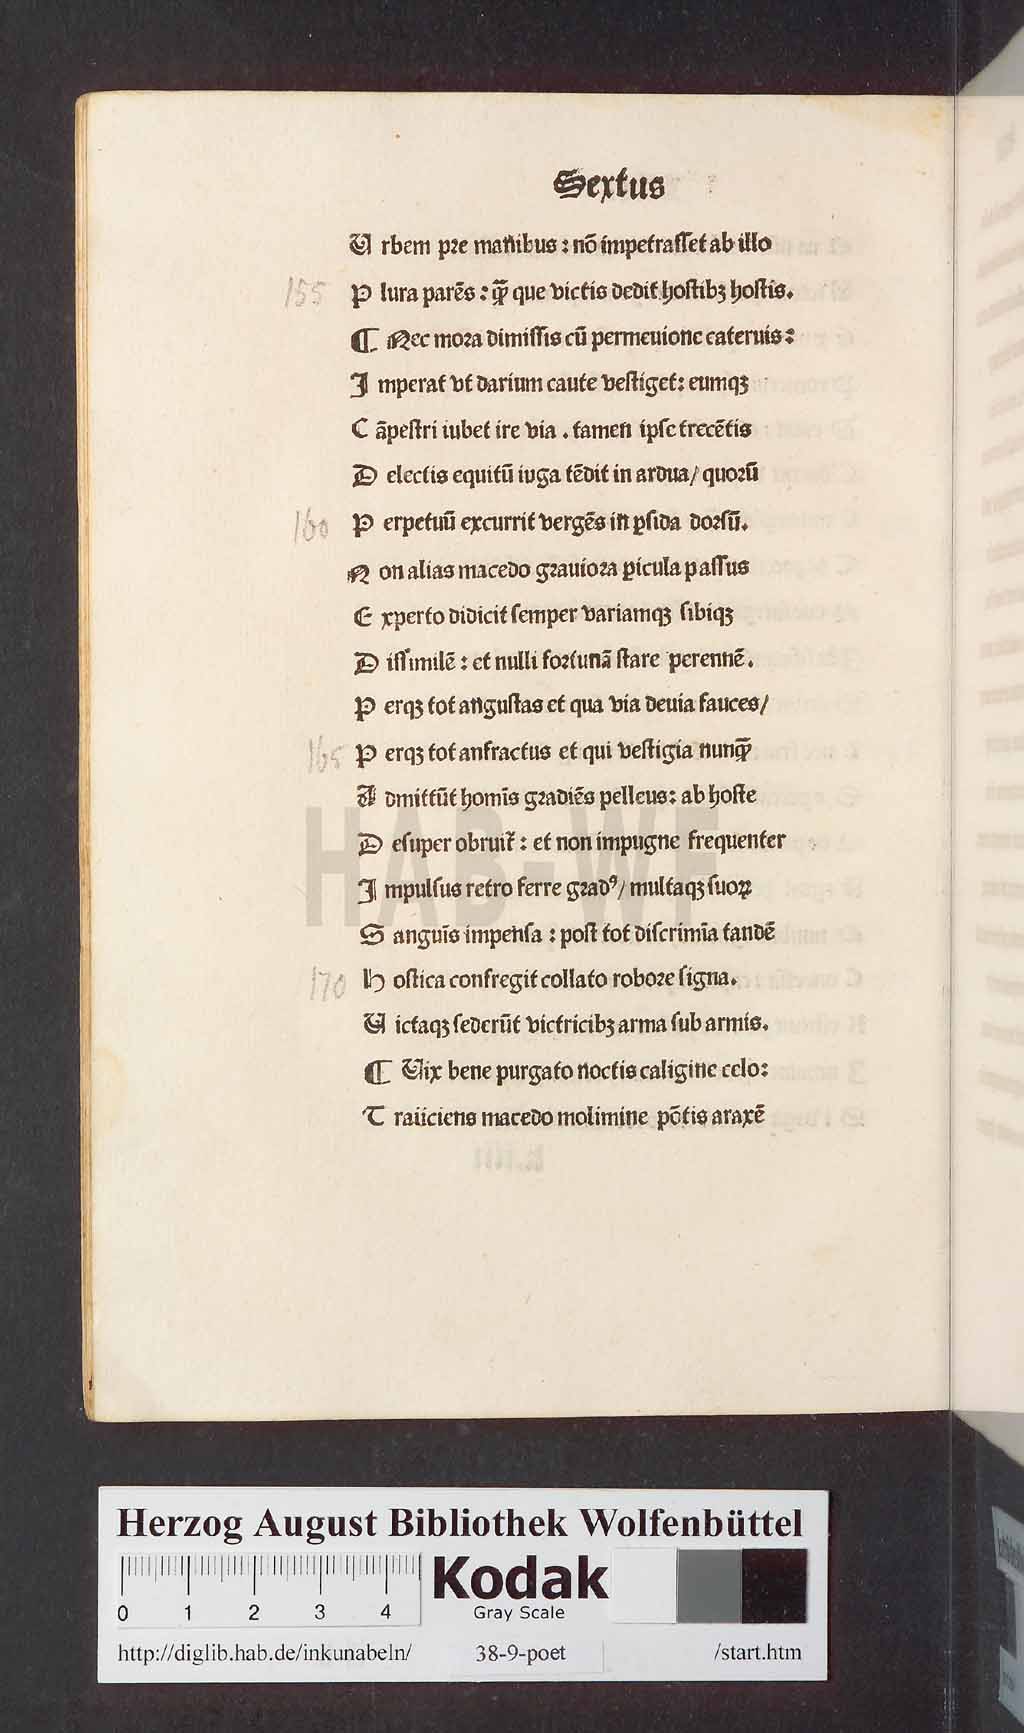 Sextus
U rbem pre manibus : nō impetrasset ab illo
155 P lura parēs : q̄ȝ que victis dedit hostibȝ hostis.
¶ Nec mora dimissis cū permenione cateruis :
I mperat vt darium caute vestiget : eumqȝ
C āpestri iubet ire via . tamen ipse trecētis
D electis equitū iuga tēdit in ardua / quorū
160 P erpetuū excurrit vergēs in ꝑsida dorsū.
N on alias macedo grauiora ꝑicula passus
E xperto didicit semper variamqȝ sibiqȝ
D issimilē : et nulli fortunā stare perennē.
P erqȝ tot angustas et qua via deuia fauces /
165 P erqȝ tot anfractus et qui vestigia nunq̄ȝ
A dmittūt homīs gradiēs pelleus : ab hoste
D esuper obruit̄ : et non impugne frequenter
I mpulsus retro ferre gradꝰ / multaqȝ suoꝝ
S anguīs impensa : post tot discrimīa tandē
170 H ostica confregit collato robore signa.
U ictaqȝ sederūt victricibȝ arma sub armis.
¶ Uix bene purgato noctis caligine celo :
T raiiciens macedo molimine pōtis araxē
HAB-WF
Herzog August Bibliothek Wolfenbüttel
0 1 2 3 4
Kodak
Gray Scale
http://diglib.hab.de/inkunabeln/ 38-9-poet /start.htm